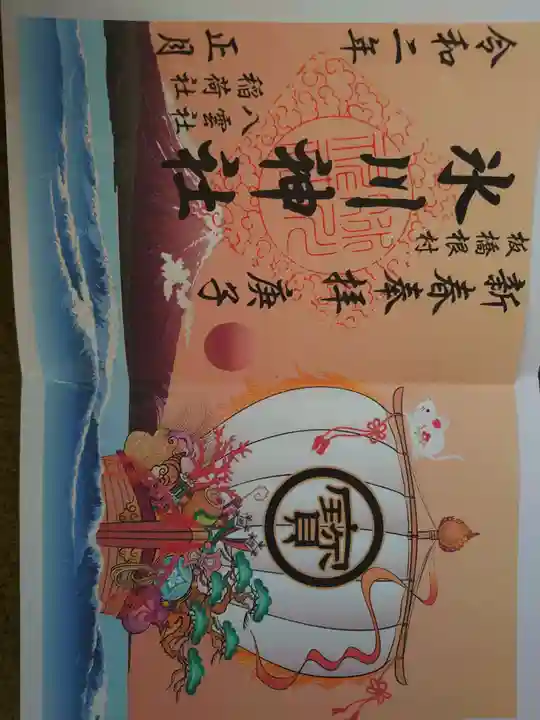 新春奉拝 庚子
板橋根村
氷川神社
八雲社
稲荷社
令和二年 正月
寶